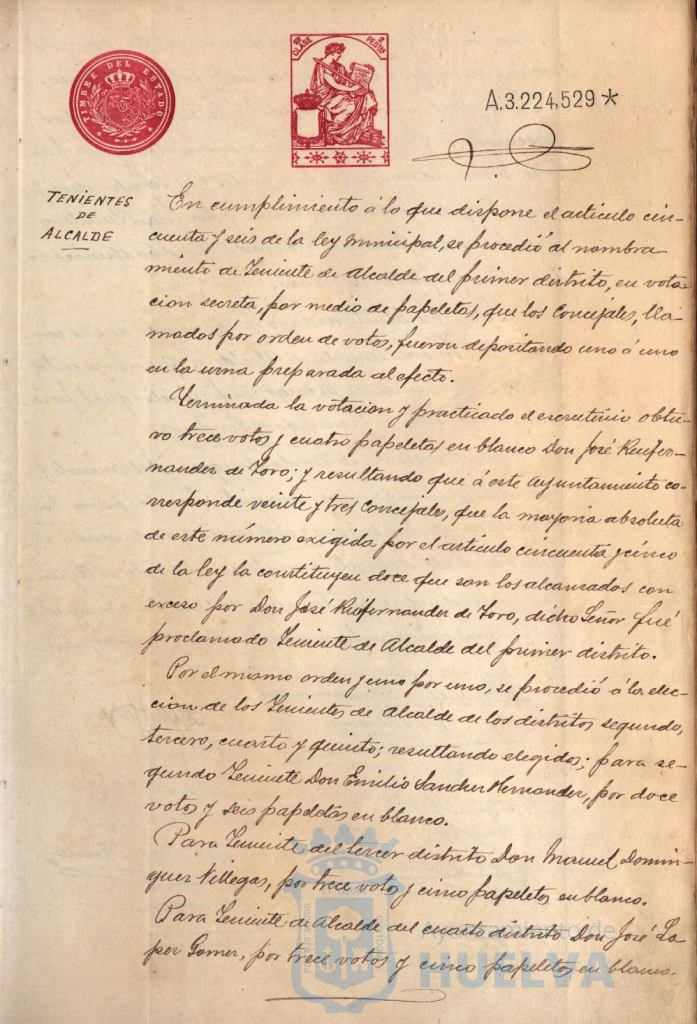 TIMBRE DEL ESTADO
10ª CLASE
2 PESTAS
A.3.224,529*
TENIENTES
DE
ALCALDE
En cumplimiento á lo que dispone el articulo cin-
cuenta y seis de la ley Municipal, se procedió al nombra
miento de Teniente de Alcalde del primer distrito, en vota
cion secreta, por medio de papeletas, que los Concejales, lla
mados por orden de votos, fueron depositando uno á uno
en la urna preparada al efecto.
Terminada la votacion y practicado el escrutinio obtu-
vo trece votos y cuatro papeletas en blanco Don José Ruifer-
nandez de Toro; y resultando que á este Ayuntamiento co-
rresponde veinte y tres Concejales, que la mayoria absoluta
de este número exigida por el articulo cincuenta y cinco
de la ley la constituyen doce que son los alcanzados con
exceso por Don José Ruifernandez de Toro, dicho Señor fué
proclamado Teniente de Alcalde del primer distrito.
Por el mismo orden y uno por uno, se procedió á la elec-
cion de los Tenientes de Alcalde de los distritos segundo,
tercero, cuarto y quinto; resultando elegidos; para se-
gundo Teniente Don Emilio Sanchez Hernandez, por doce
votos y seis papeletas en blanco.
Para Teniente del tercer distrito Don Manuel Domin-
guez Villegas, por trece votos y cinco papeletas en blanco.
Para Teniente de Alcalde del cuarto distrito Don José Lo
pez Gomez, por trece votos y cinco papeletas en blanco.
Ayuntamiento de
HUELVA